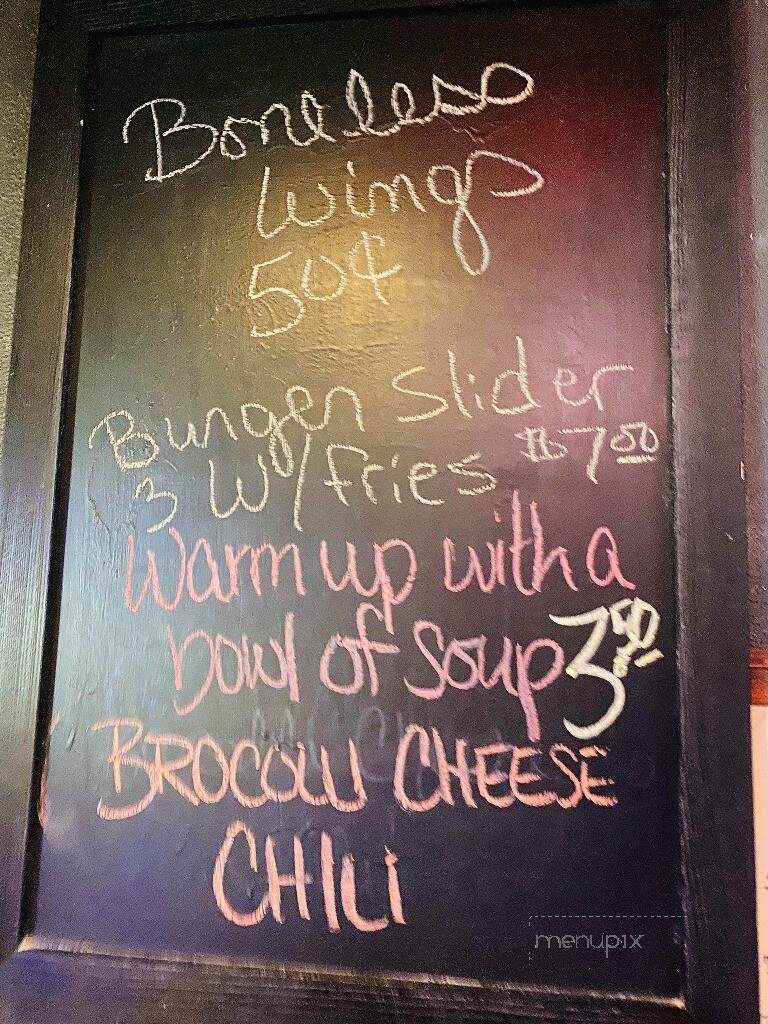 Boneless
Wings
50¢
Burger Slider
3 W/fries $7.00
Warm up with a
bowl of Soup 3.50
BROCOLLI CHEESE
CHILI
menupix